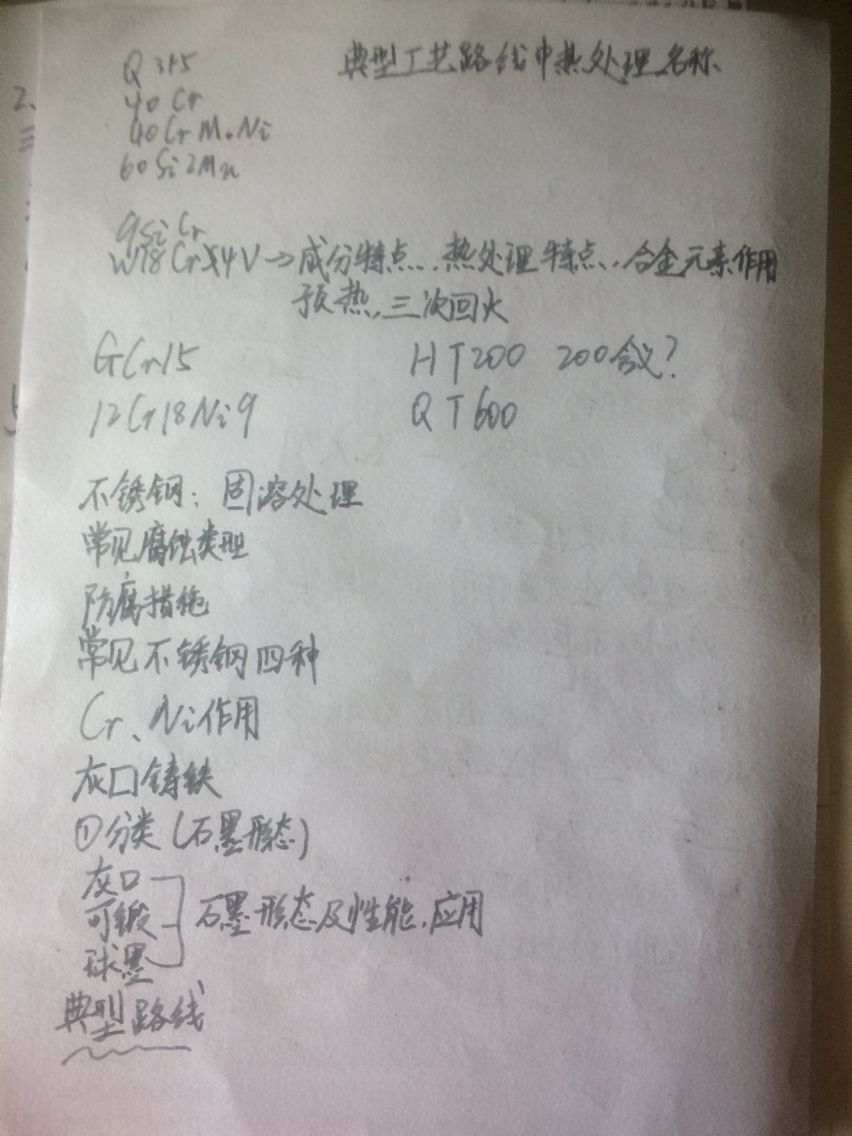 典型工艺路线中热处理名称
Q345
40Cr
40CrMoNi
60Si2Mn
9SiCr
W18Cr4V→成分特点、热处理特点、合金元素作用
预热、三次回火
GCr15
HT200 200含义?
12Cr18Ni9
QT600
不锈钢：固溶处理
常见腐蚀类型
防腐措施
常见不锈钢四种
Cr、Ni作用
灰口铸铁
①分类(石墨形态)
灰口
可锻
石墨形态及性能、应用
球墨
典型路线